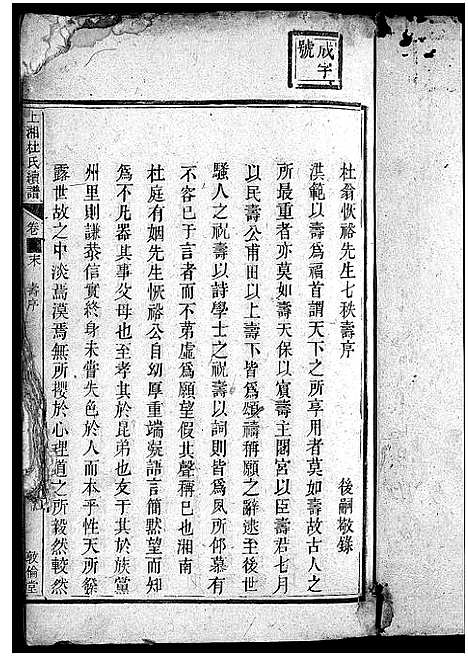 成字號
杜翁恢裕先生七秩壽序
後嗣敬錄
洪範以壽爲福首謂天下之所享用者莫如壽故古人之
所最重者亦莫如壽天保以賓壽主閟宮以臣壽君七月
以民壽公甫田以上壽下皆爲頌禱稱願之辭逃至後世
騷人之祝壽以詩學士之祝壽以詞則皆爲夙所仰慕有
不容已于言者而不第虛爲願望假其聲稱已也湘南
杜庭有姻先生恢裕公自幼厚重端凝語言簡默望而知
爲不凡器其事父母也至孝其於昆弟也友于其於族黨
州里則謙恭信實終身未嘗失色於人而本乎性天所發
露世故之中淡焉漠焉無所攖於心理道之所毅然較然
上湘杜氏續譜
卷末
壽序
敦倫堂